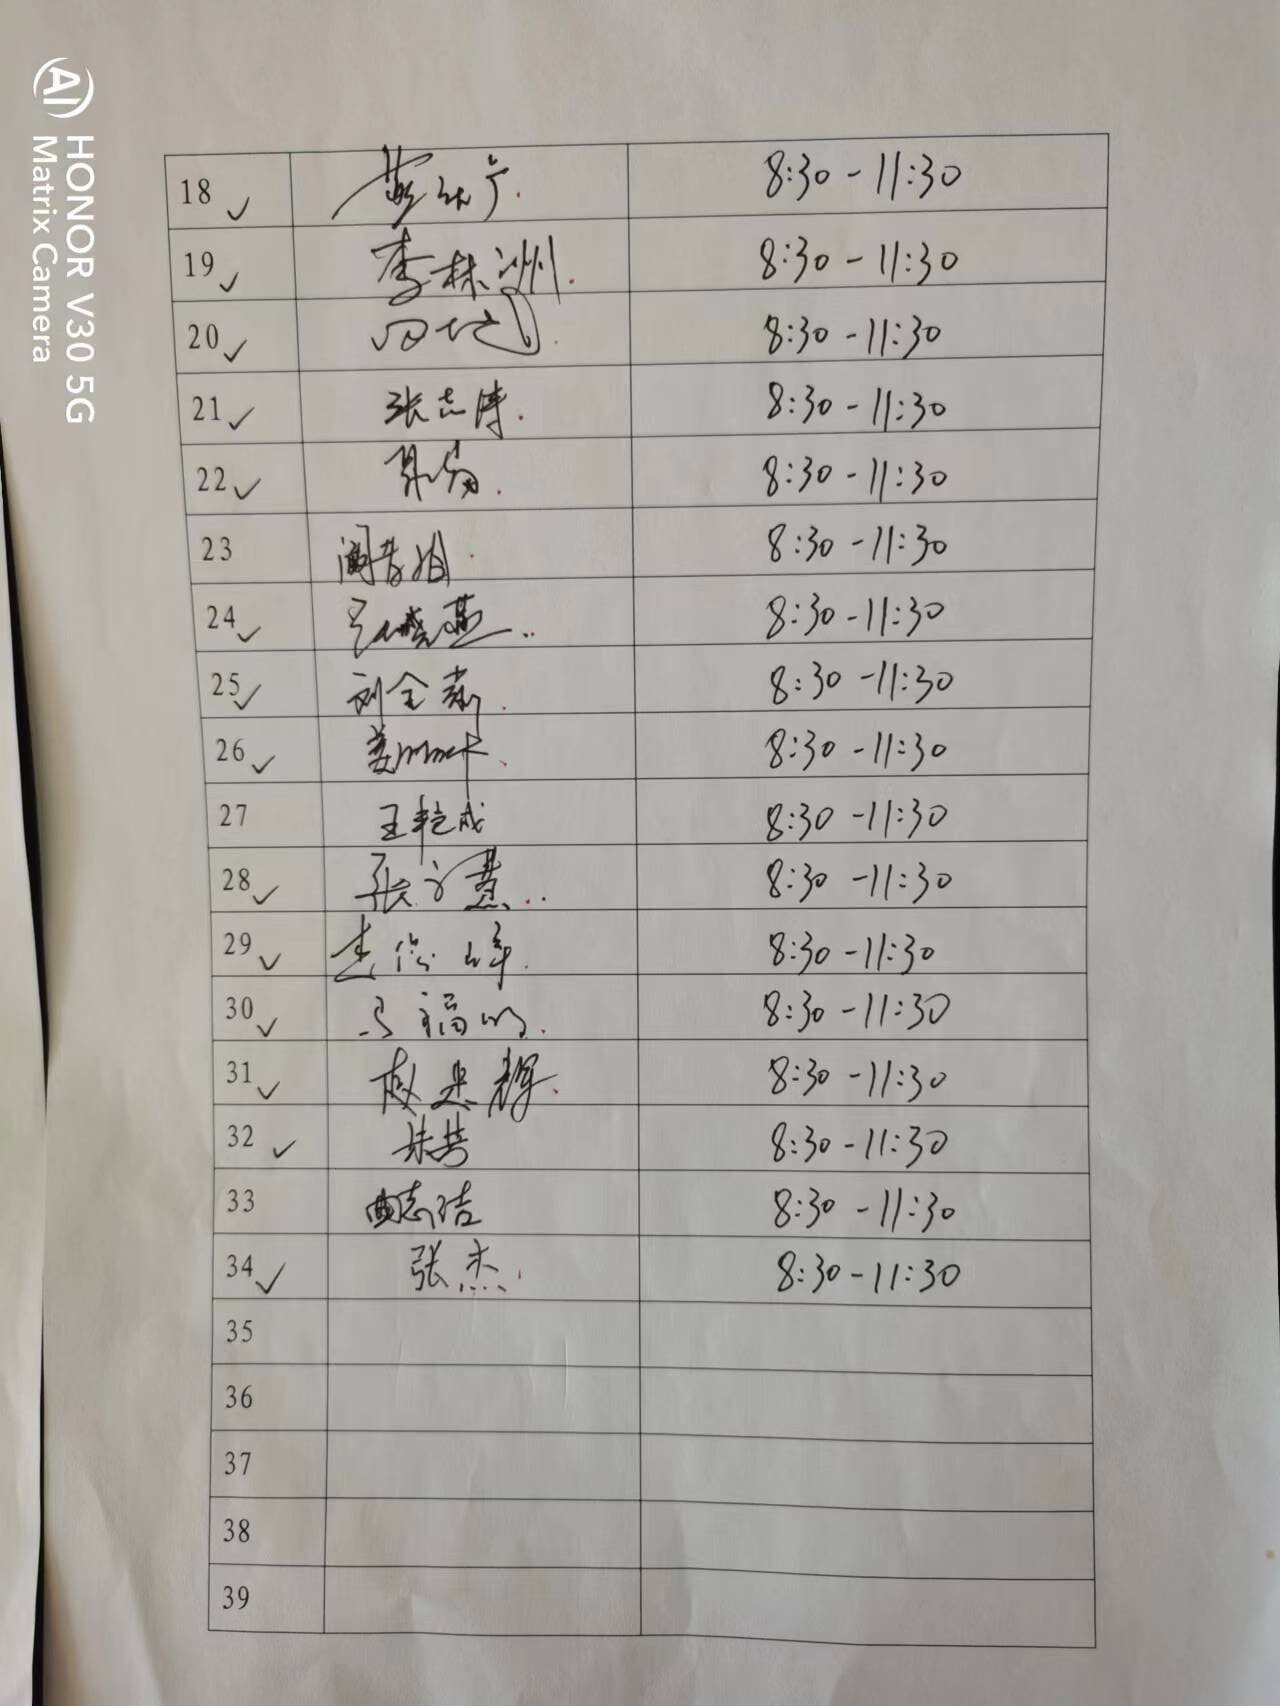 HONOR V30 5G
Matrix Camera
18 ✓ 8:30-11:30
19 ✓ 李林洲. 8:30-11:30
20 ✓ 8:30-11:30
21 ✓ 张志涛. 8:30-11:30
22 ✓ 8:30-11:30
23 8:30-11:30
24 ✓ 8:30-11:30
25 ✓ 刘全 8:30-11:30
26 ✓ 8:30-11:30
27 王艳成 8:30-11:30
28 ✓ 张 慧.. 8:30-11:30
29 ✓ 8:30-11:30
30 ✓ 马福明. 8:30-11:30
31 ✓ 8:30-11:30
32 ✓ 朱芳 8:30-11:30
33 曲志洁 8:30-11:30
34 ✓ 张杰. 8:30-11:30
35
36
37
38
39